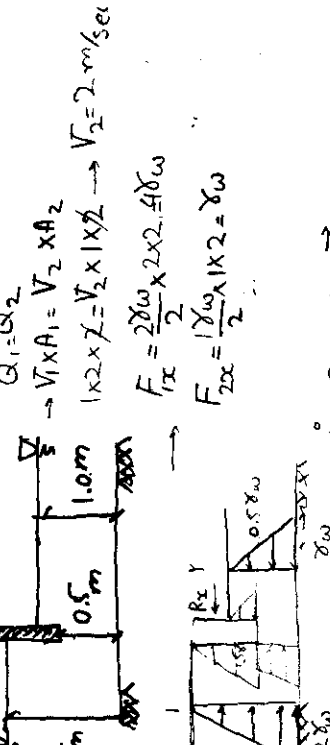 Q₁=Q₂
→ V₁×A₁ = V₂ × A₂
1×2×2 = V₂ × 1×2 → V₂ = 2 m/sec
F₁ₓ = 2γw/2 × 2×2 = 4γw
F₂ₓ = 1γw/2 × 1×2 = γw
1.0m
0.5m
m
1
Rx
Y
0.5γw
γw
γw